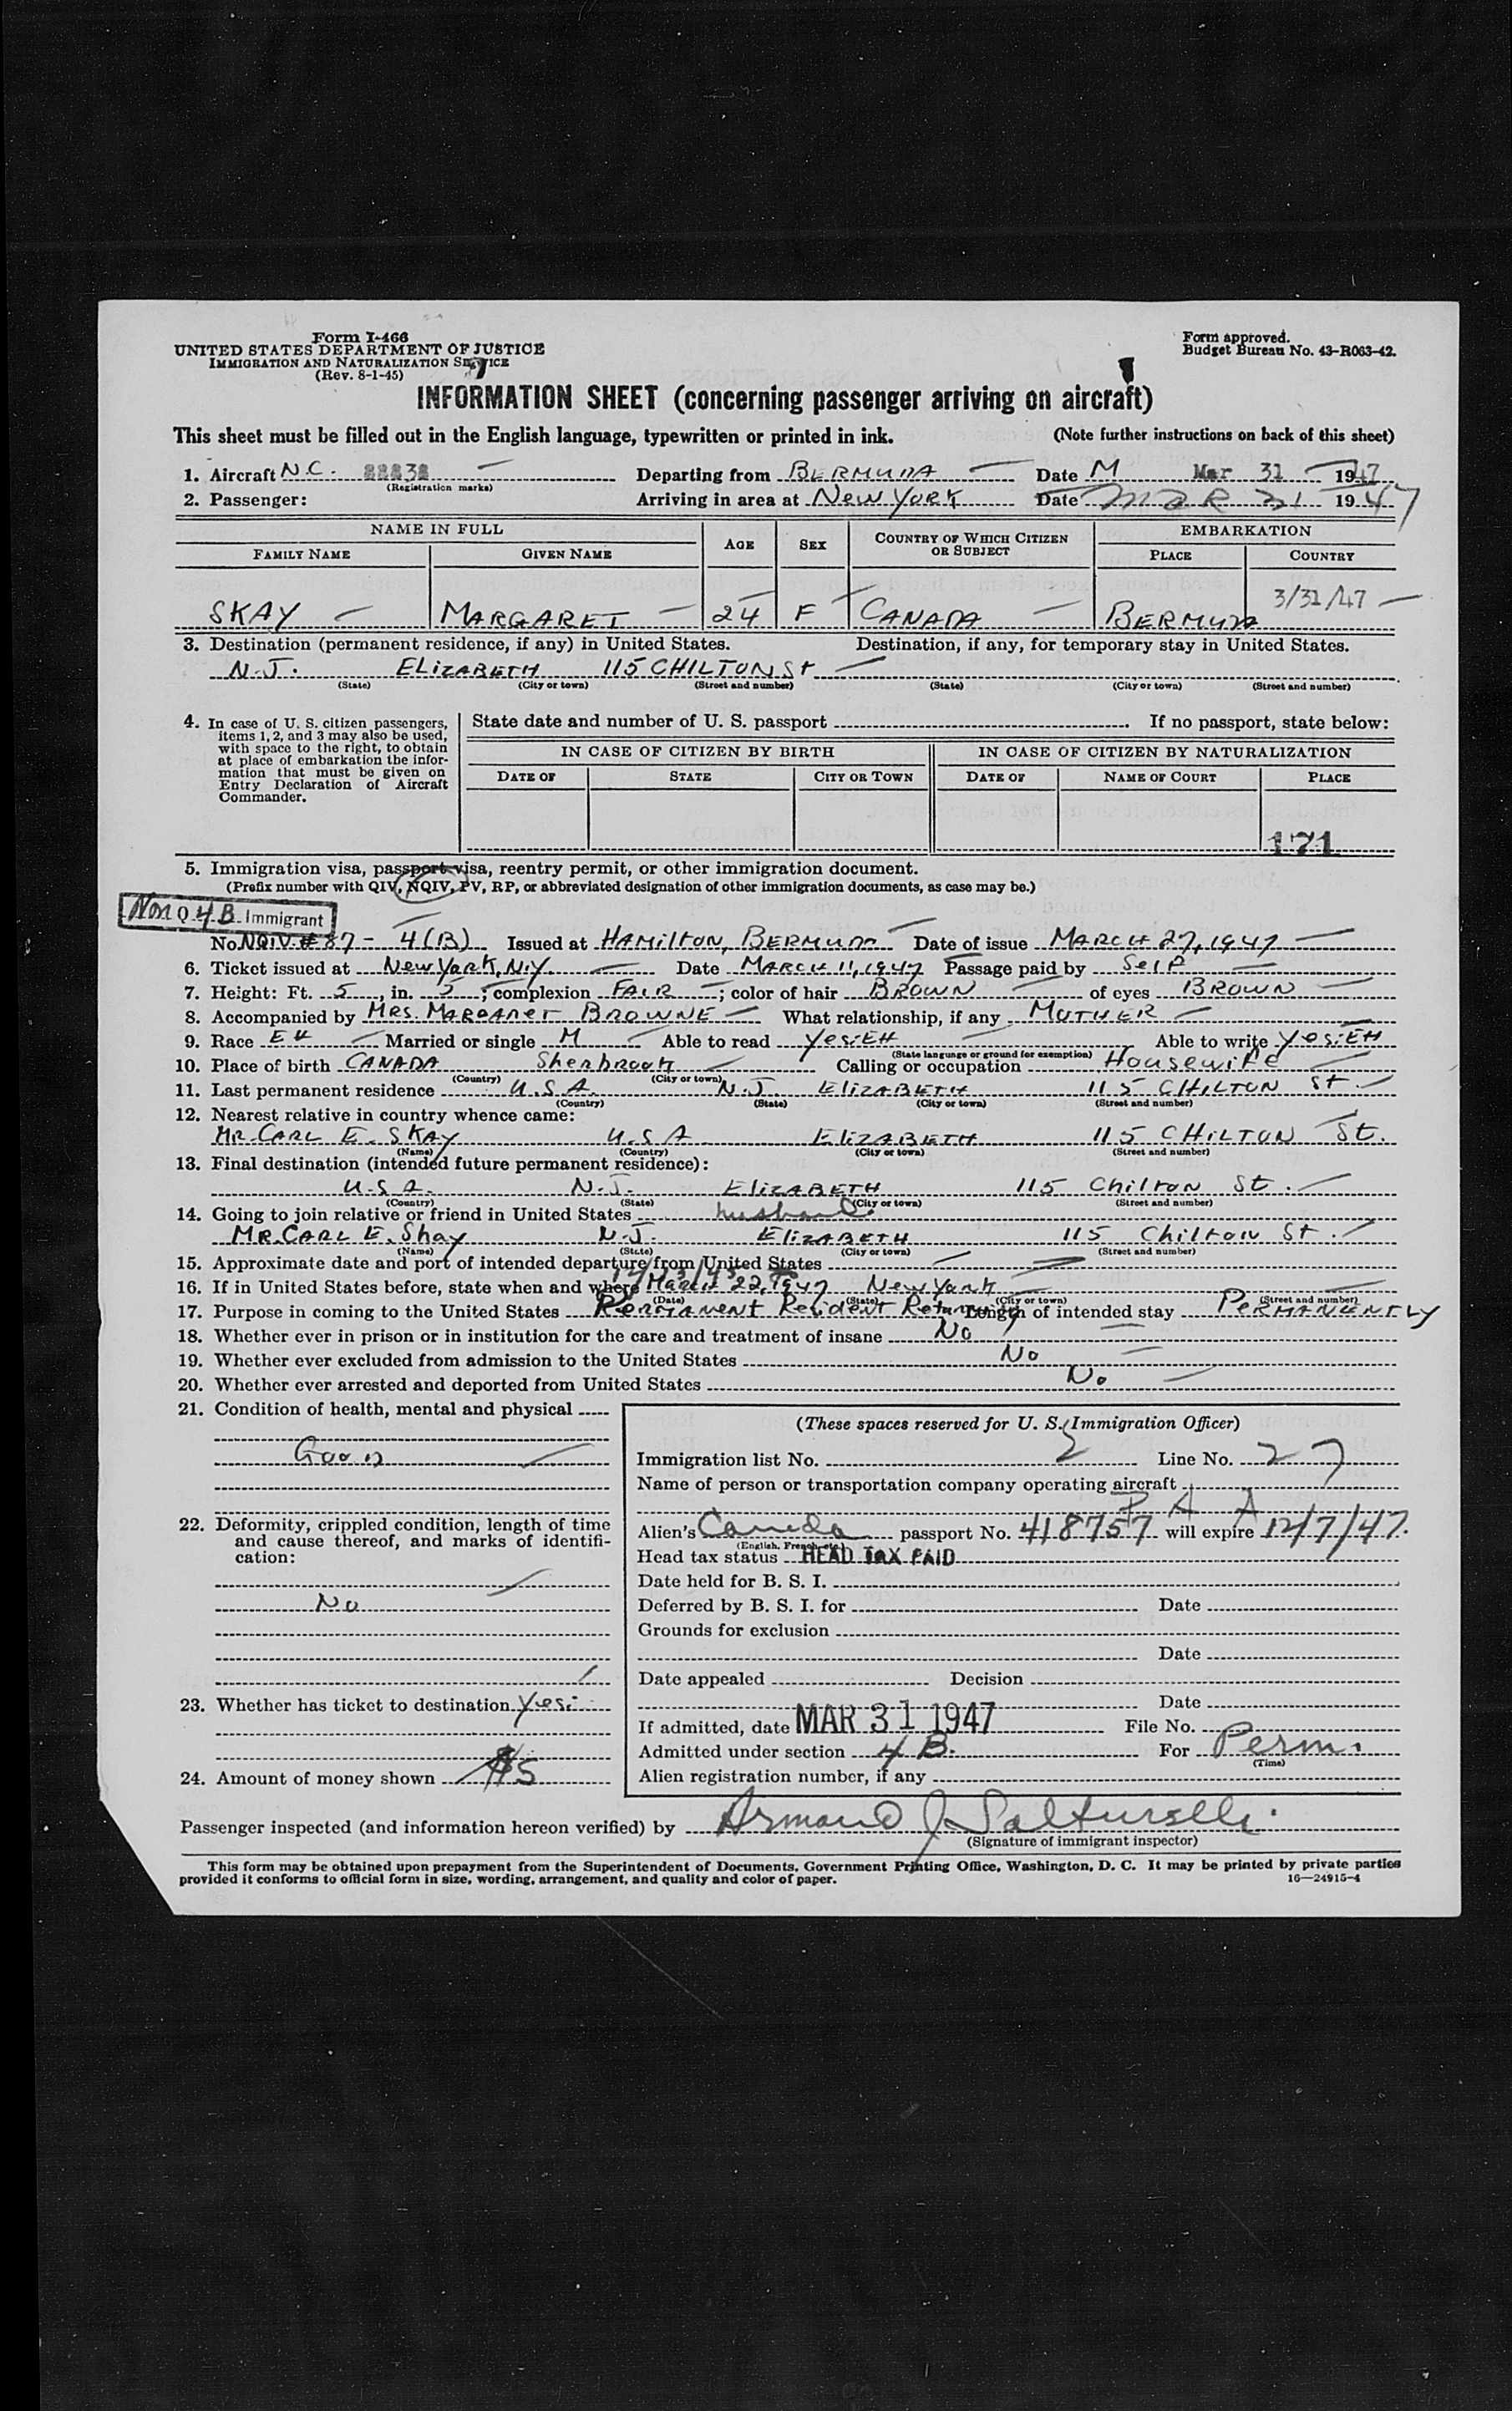 Form I-466
UNITED STATES DEPARTMENT OF JUSTICE
IMMIGRATION AND NATURALIZATION SERVICE
(Rev. 8-1-45)
Form approved.
Budget Bureau No. 43-R063-42.
INFORMATION SHEET (concerning passenger arriving on aircraft)
This sheet must be filled out in the English language, typewritten or printed in ink. (Note further instructions on back of this sheet)
1. Aircraft N.C. 88838 Departing from BERMUDA Date M Mar 31 1947
(Registration marks)
2. Passenger: Arriving in area at NEW YORK Date MAR 31 1947
NAME IN FULL AGE SEX COUNTRY OF WHICH CITIZEN OR SUBJECT EMBARKATION
FAMILY NAME GIVEN NAME PLACE COUNTRY
3/31/47
SKAY MARGARET 24 F CANADA BERMUDA
3. Destination (permanent residence, if any) in United States. Destination, if any, for temporary stay in United States.
N.J. ELIZABETH 115 CHILTON St
(State) (City or town) (Street and number) (State) (City or town) (Street and number)
4. In case of U. S. citizen passengers, items 1, 2, and 3 may also be used, with space to the right, to obtain at place of embarkation the information that must be given on Entry Declaration of Aircraft Commander.
State date and number of U. S. passport If no passport, state below:
IN CASE OF CITIZEN BY BIRTH IN CASE OF CITIZEN BY NATURALIZATION
DATE OF STATE CITY OR TOWN DATE OF NAME OF COURT PLACE
171
5. Immigration visa, passport visa, reentry permit, or other immigration document.
(Prefix number with QIV, NQIV, PV, RP, or abbreviated designation of other immigration documents, as case may be.)
Non Q 4 B Immigrant
No. NQIV. #87- 4(B) Issued at HAMILTON, BERMUDA Date of issue MARCH 27, 1947
6. Ticket issued at New York, N.Y. Date MARCH 11, 1947 Passage paid by Self
7. Height: Ft. 5, in. 5; complexion FAIR; color of hair BROWN of eyes BROWN
8. Accompanied by MRS. MARGARET BROWNE What relationship, if any MOTHER
9. Race EH Married or single M Able to read Yes:EH Able to write Yes:EH
(State language or ground for exemption)
10. Place of birth CANADA Sherbrook Calling or occupation Housewife
(Country) (City or town)
11. Last permanent residence U.S.A. N.J. ELIZABETH 115 CHILTON St
(Country) (State) (City or town) (Street and number)
12. Nearest relative in country whence came:
MR. CARL E. SKAY U.S.A ELIZABETH 115 CHILTON St.
(Name) (Country) (City or town) (Street and number)
13. Final destination (intended future permanent residence):
U.S.A. N.J. ELIZABETH 115 Chilton St.
(Country) (State) (City or town) (Street and number)
14. Going to join relative or friend in United States husband.
MR. CARL E. Skay N.J. ELIZABETH 115 Chilton St.
(Name) (State) (City or town) (Street and number)
15. Approximate date and port of intended departure from United States
16. If in United States before, state when and where March 22, 1947 New York
(Date) (State) (City or town) (Street and number)
17. Purpose in coming to the United States Permanent Resident Returning Length of intended stay PERMANENTLY
18. Whether ever in prison or in institution for the care and treatment of insane No
19. Whether ever excluded from admission to the United States No
20. Whether ever arrested and deported from United States No
21. Condition of health, mental and physical
Good
22. Deformity, crippled condition, length of time and cause thereof, and marks of identification:
No
23. Whether has ticket to destination Yes:
24. Amount of money shown $5
(These spaces reserved for U. S. Immigration Officer)
Immigration list No. 2 Line No. 27
Name of person or transportation company operating aircraft
P A A
Alien's Canada passport No. 418757 will expire 12/7/47.
(English, French, etc.)
Head tax status HEAD TAX PAID
Date held for B. S. I.
Deferred by B. S. I. for Date
Grounds for exclusion
Date
Date appealed Decision
Date
If admitted, date MAR 31 1947 File No.
Admitted under section 4 B. For Perm.
(Time)
Alien registration number, if any
Passenger inspected (and information hereon verified) by Armand J.
(Signature of immigrant inspector)
This form may be obtained upon prepayment from the Superintendent of Documents, Government Printing Office, Washington, D. C. It may be printed by private parties
provided it conforms to official form in size, wording, arrangement, and quality and color of paper. 16—24915-4